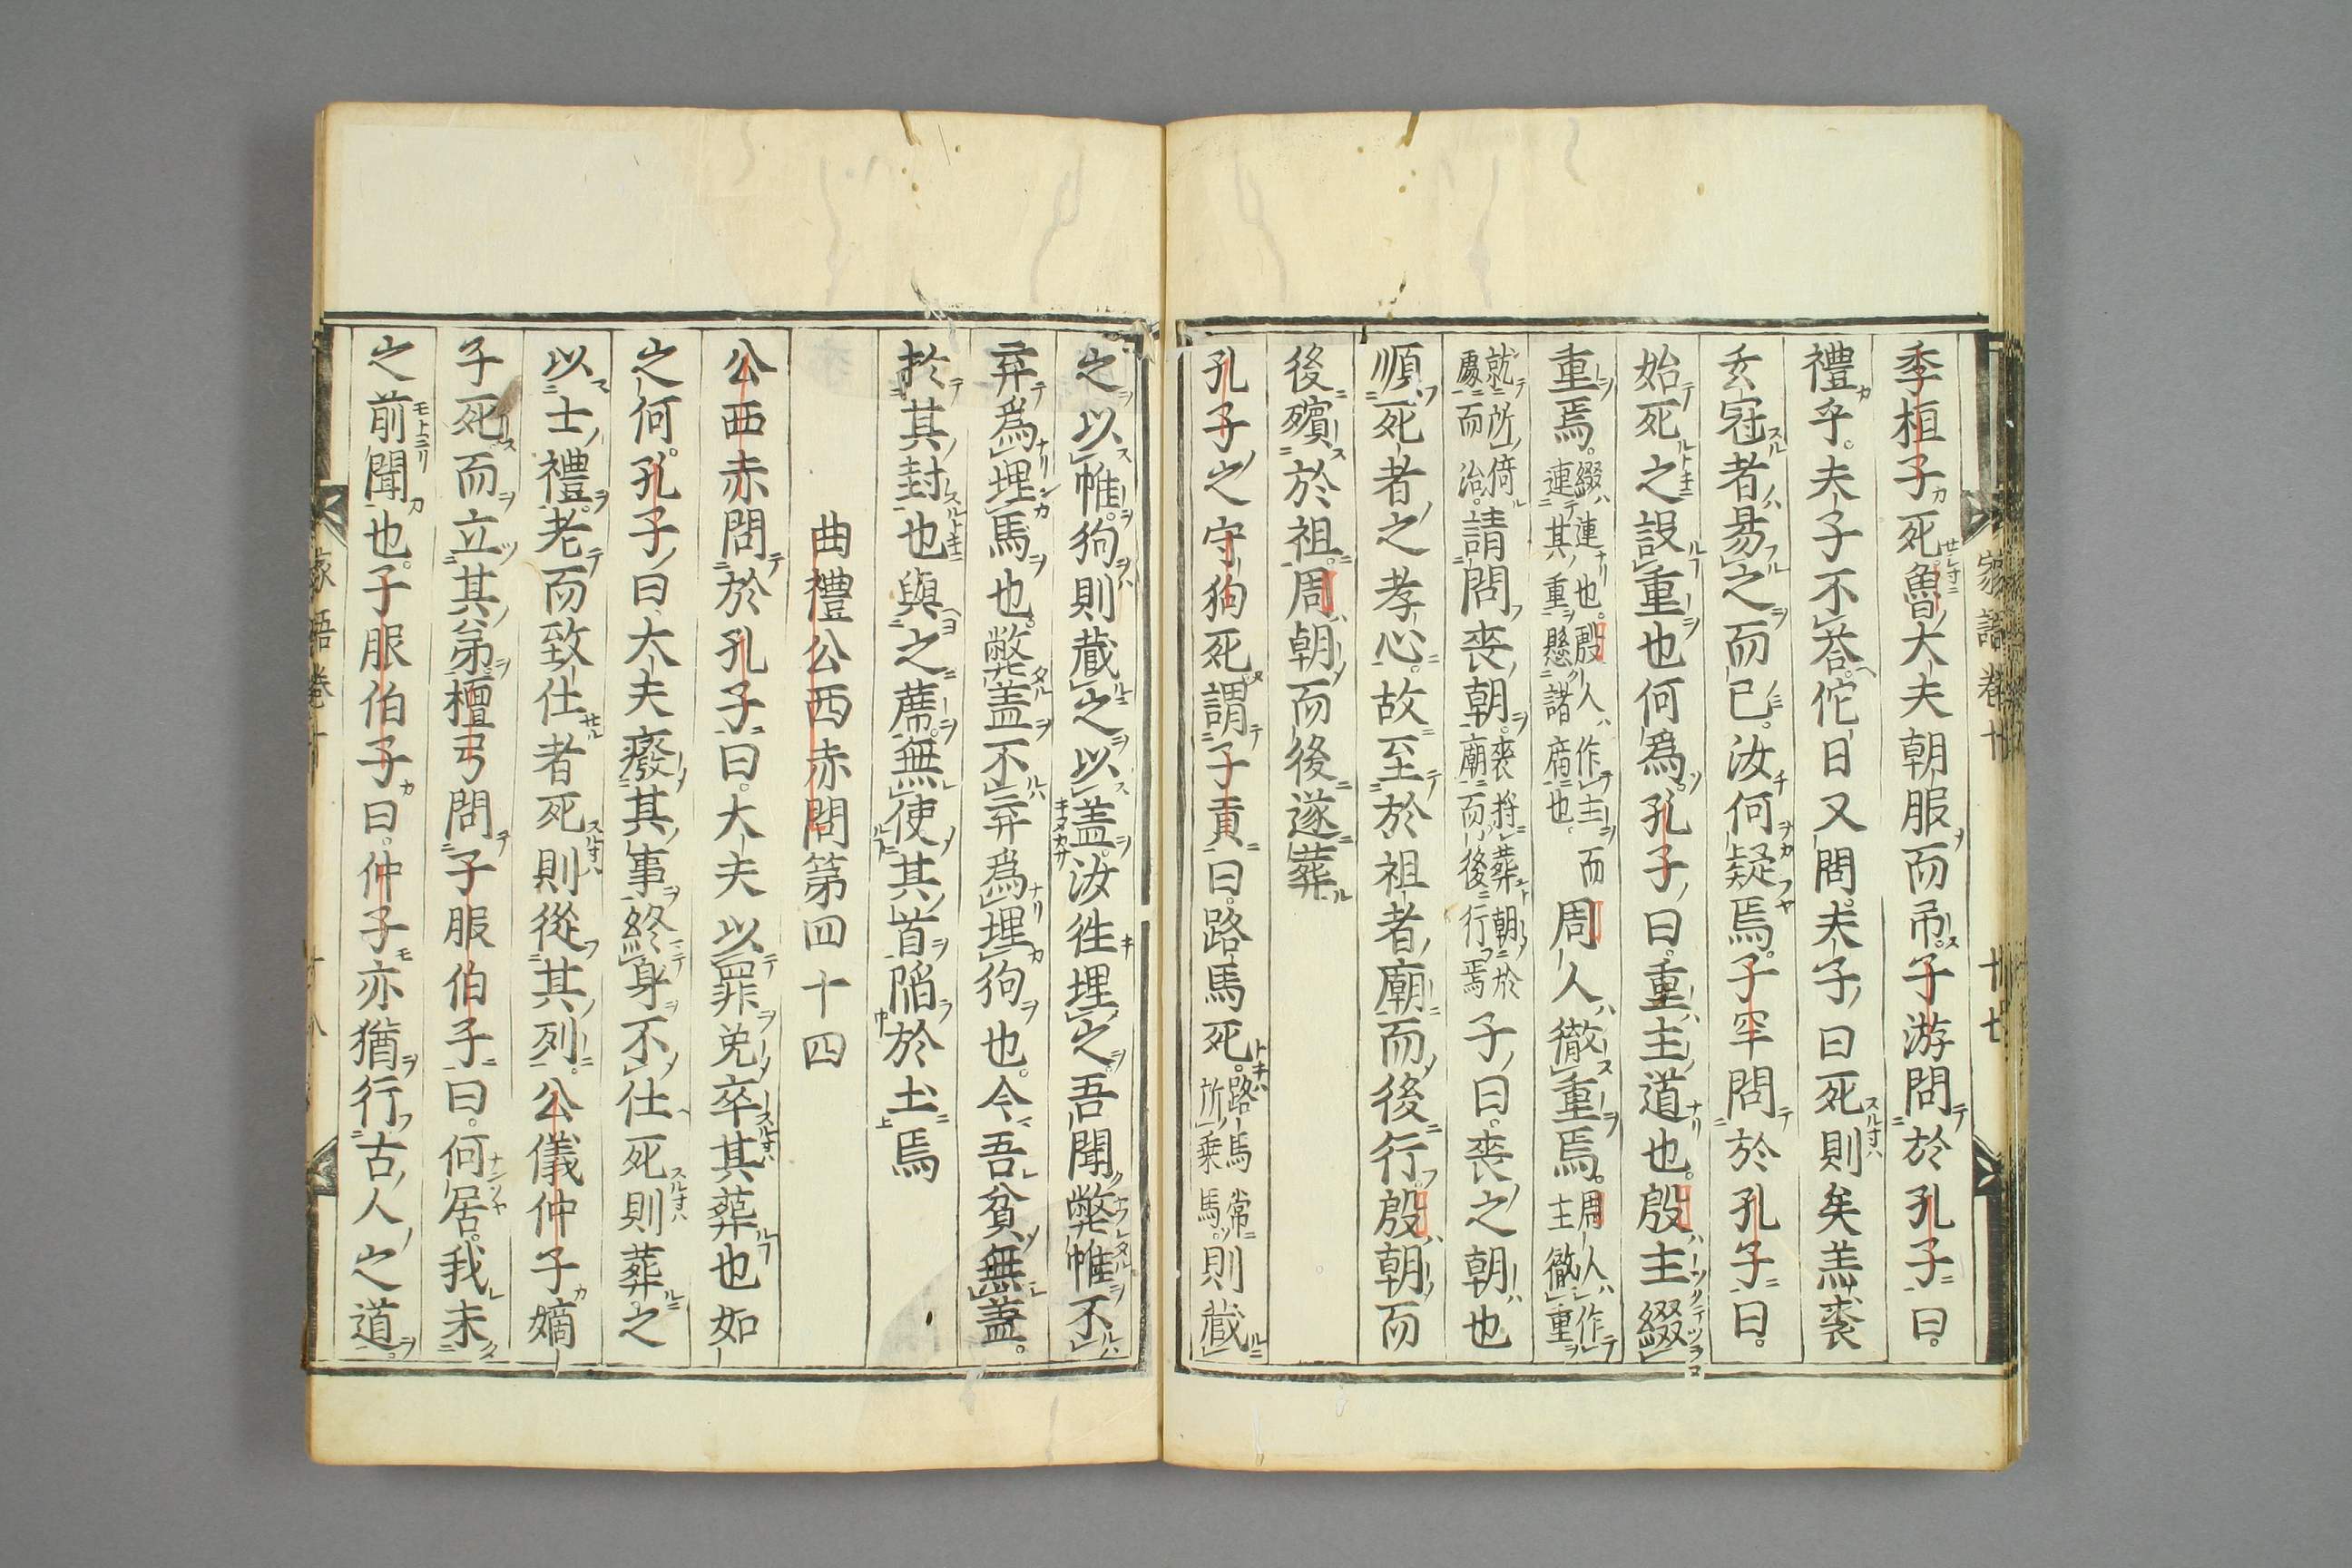 季桓子死魯大夫朝服而吊子游問於孔子曰
禮乎夫子不荅佗日又問夫子曰死則矣羔裘
玄冠者易之而已汝何疑焉子罕問於孔子曰
始死之設重也何爲孔子曰重主道也殷主綴
重焉綴連也殷人作主而連其重懸諸廟也周人徹重焉周人作主徹重
就所倚處而治請問喪朝喪將葬朝於廟而後行焉子曰喪之朝也
順死者之孝心故至於祖者廟而後行殷朝而
後殯於祖周朝而後遂葬
孔子之守狗死謂子貢曰路馬死路馬常所乗馬則藏
之以帷狗則藏之以盖汝徃埋之吾聞弊帷不
弃爲埋馬也弊盖不弃爲埋狗也今吾貧無蓋
於其封也與之蓆無使其首陷於土焉
曲禮公西赤問第四十四
公西赤問於孔子曰大夫以罪免卒其葬也如
之何孔子曰大夫癈其事終身不仕死則葬之
以士禮老而致仕者死則從其列公儀仲子嫡
子死而立其弟檀弓問子服伯子曰何居我未
之前聞也子服伯子曰仲子亦猶行古人之道
家語卷十
廿七